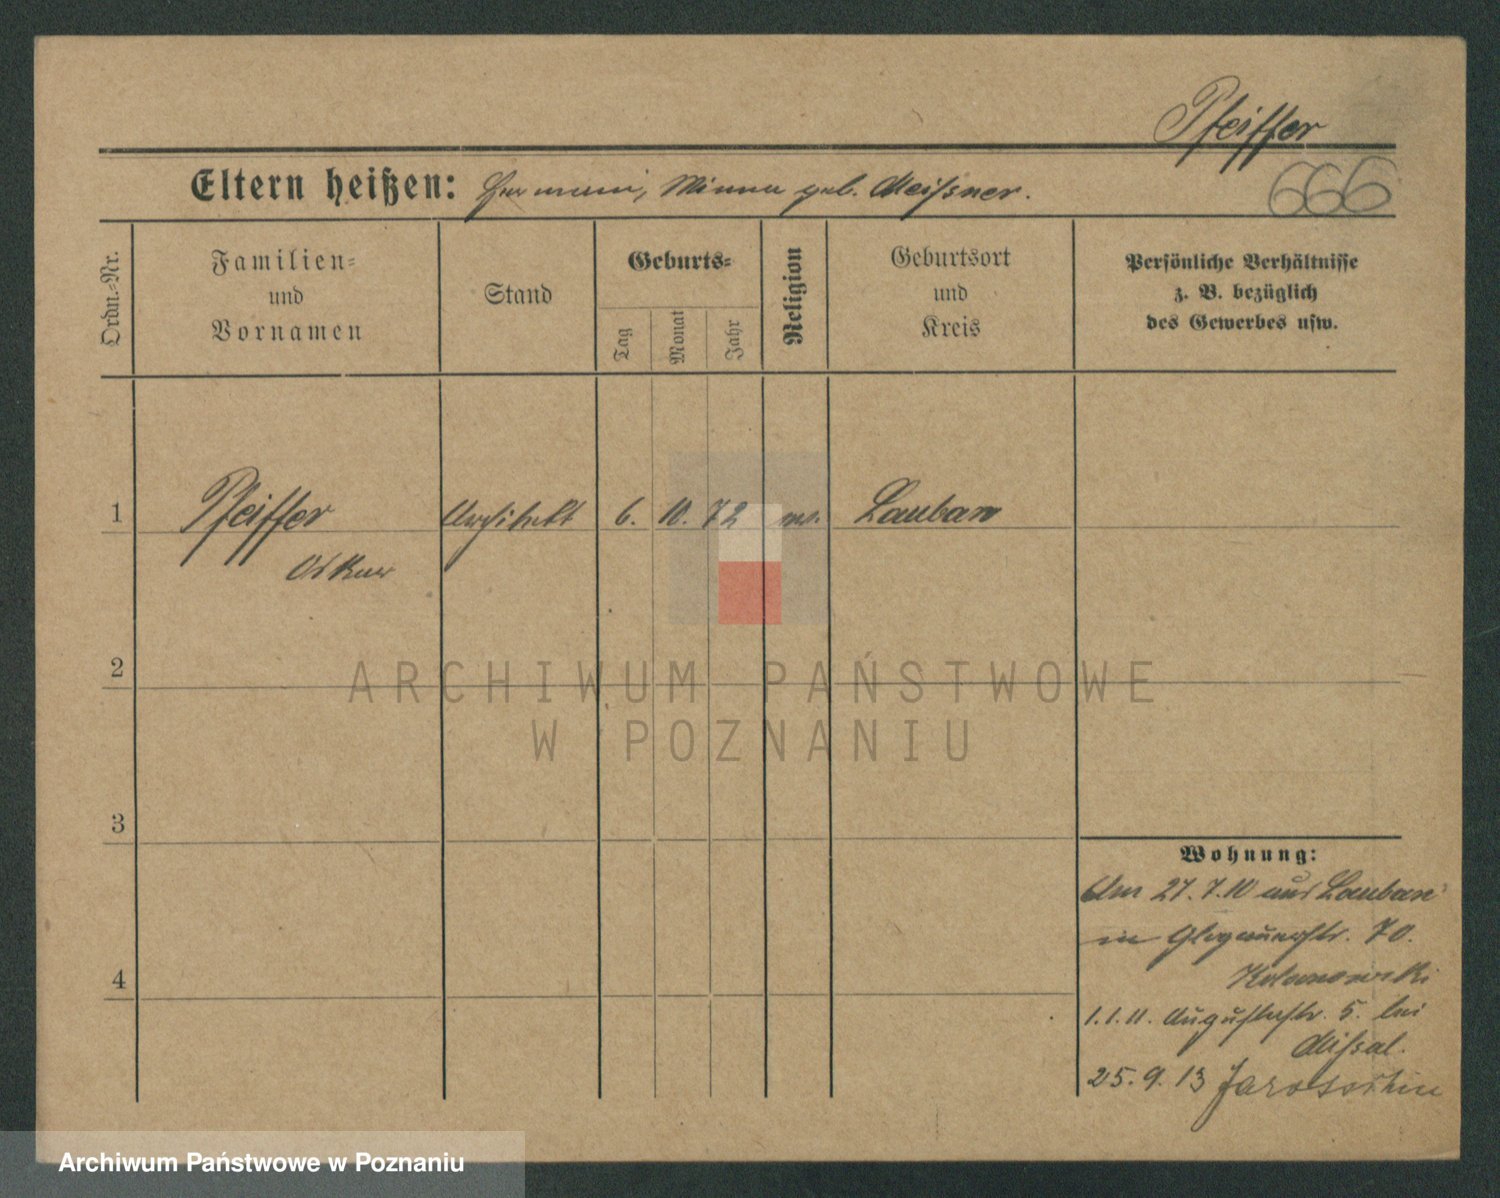 Pfeiffer
Eltern heißen: Hermann, Minna geb. Meißner.
666
Ordn.-Nr.
Familien-
und
Vornamen
Stand
Geburts-
Tag
Monat
Jahr
Religion
Geburtsort
und
Kreis
Persönliche Verhältnisse
z. B. bezüglich
des Gewerbes usw.
1 Pfeiffer Architekt 6. 10. 72 Lauban
Oskar
2
ARCHIWUM PAŃSTWOWE
W POZNANIU
3
Wohnung:
Am 27.7.10 aus Lauban
in Glogauerstr. 70.
4
Kolanowski
1.1.11. Augustastr. 5. bei
Missal.
25.9.13 Jarotschin
Archiwum Państwowe w Poznaniu